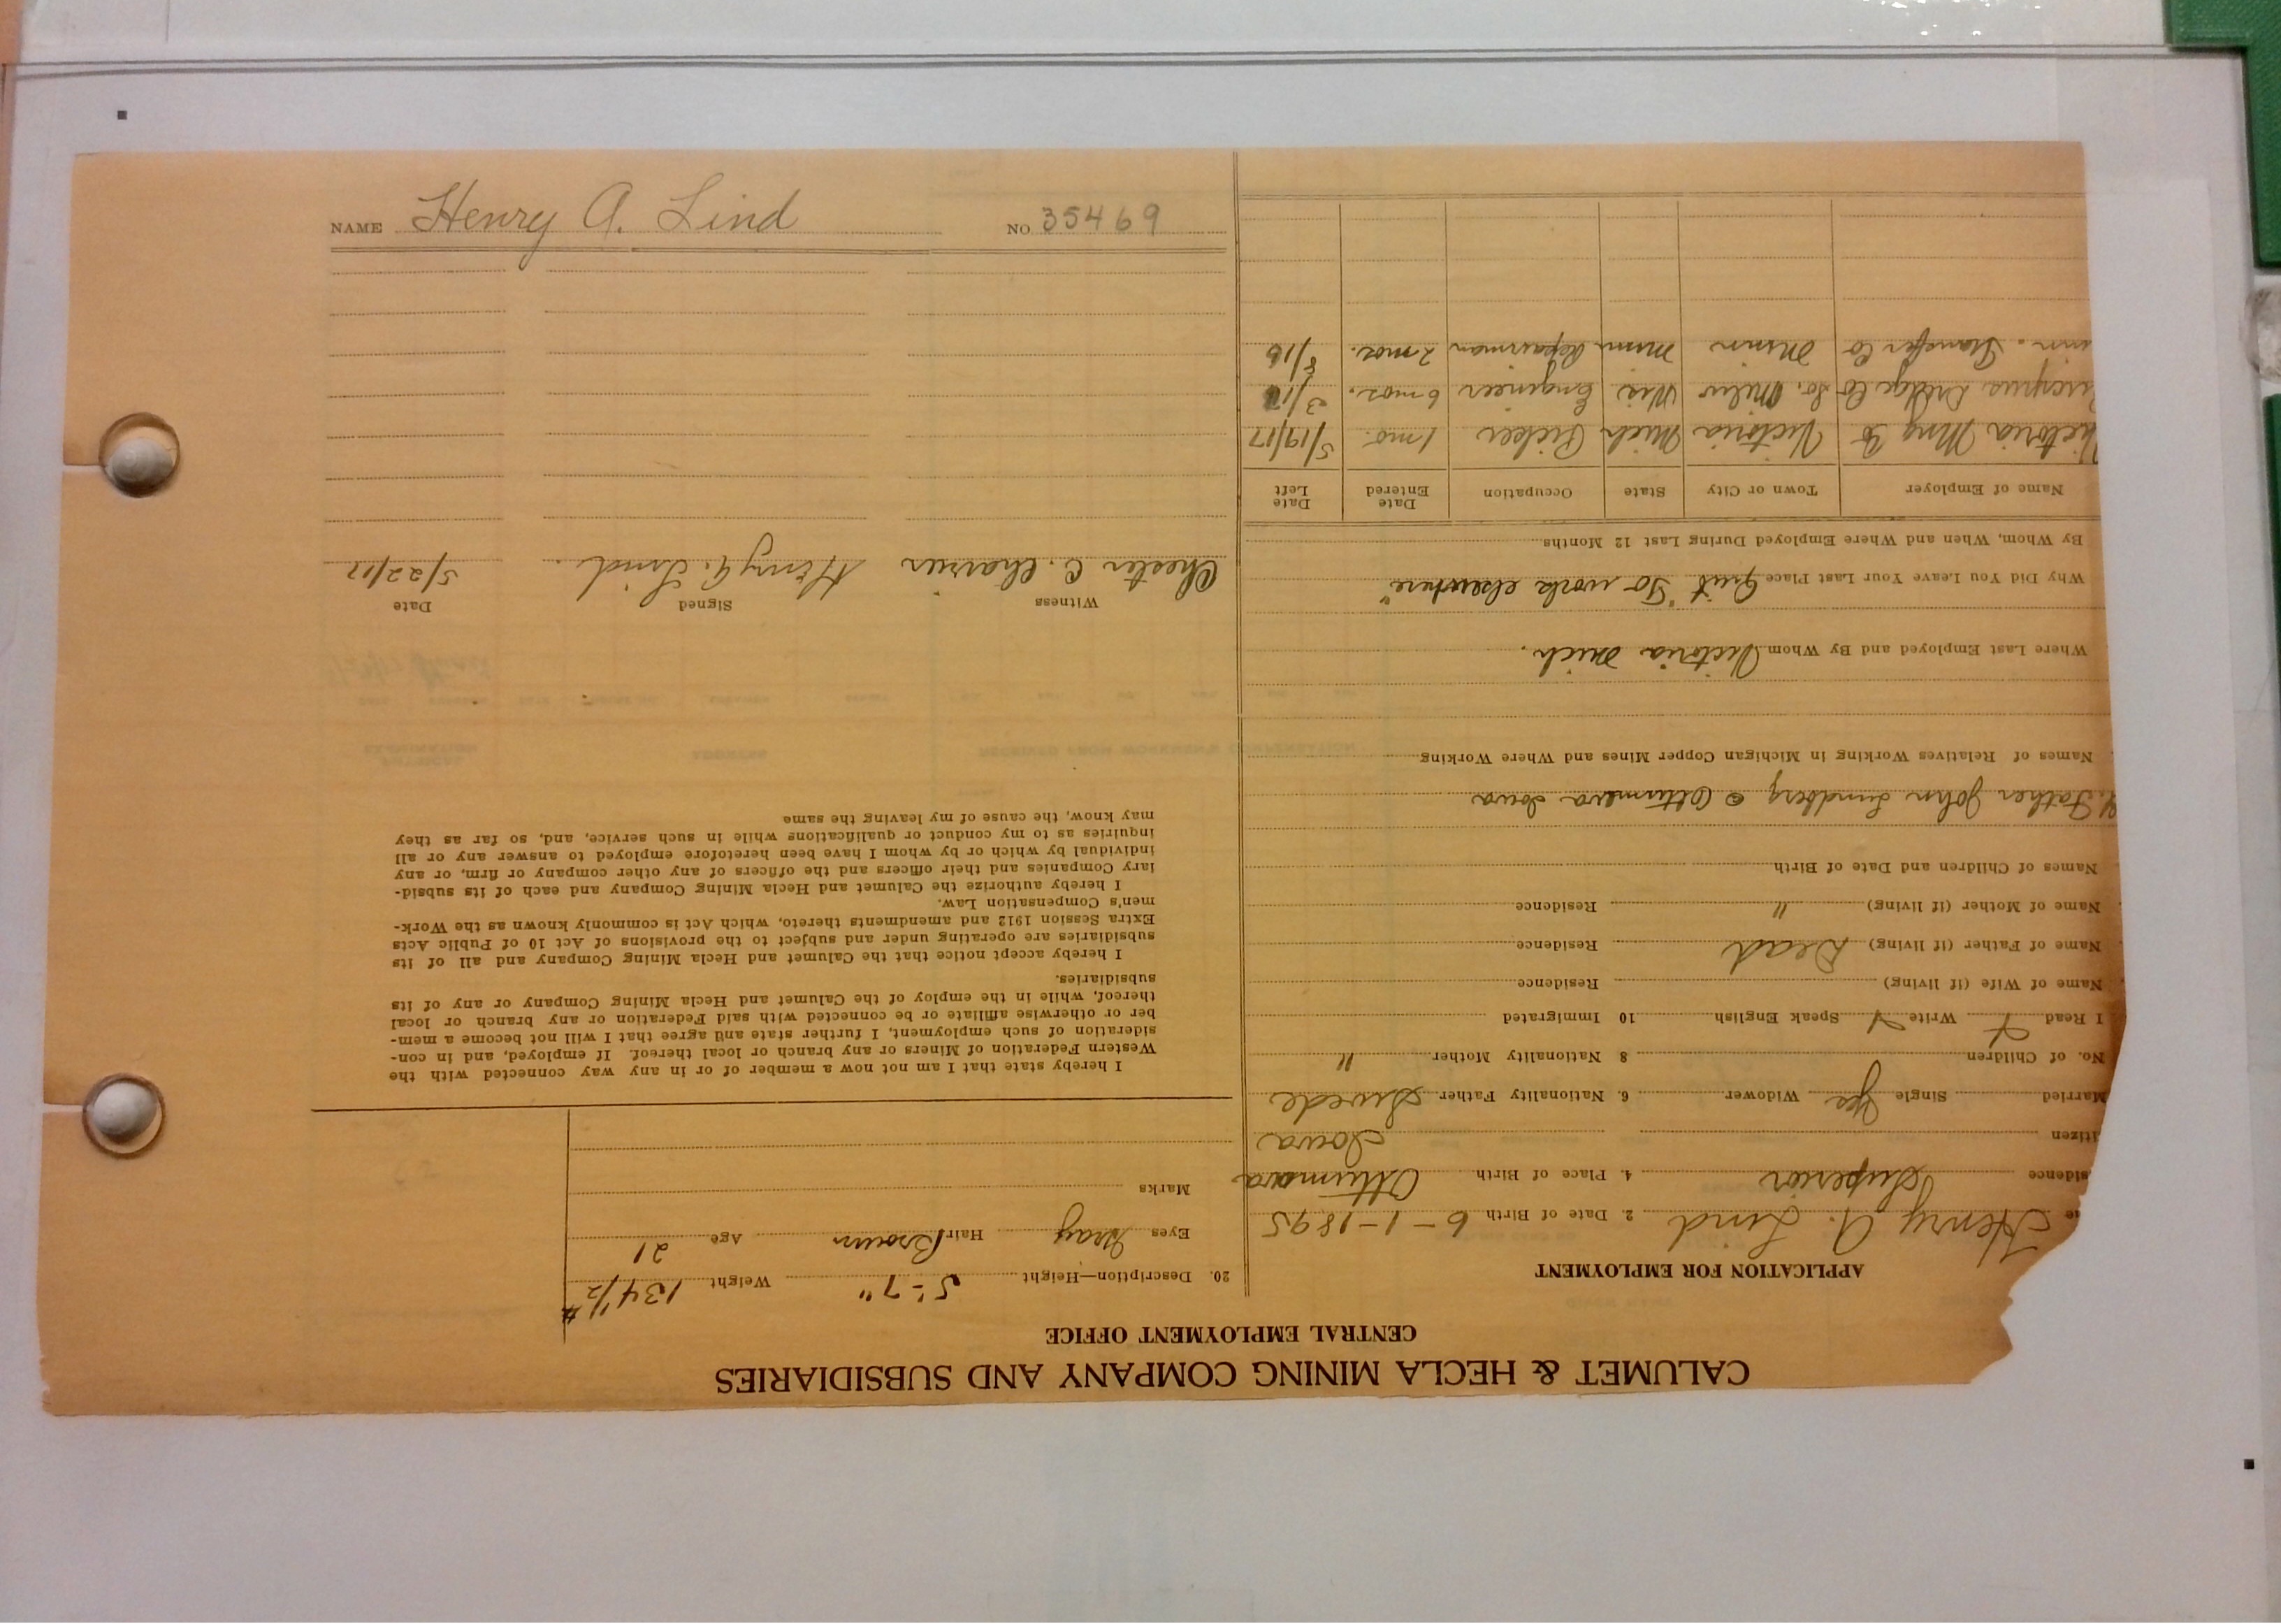 CALUMET & HECLA MINING COMPANY AND SUBSIDIARIES
CENTRAL EMPLOYMENT OFFICE
APPLICATION FOR EMPLOYMENT
Henry A. Lind 2. Date of Birth 6-1-1895
sidence Superior 4. Place of Birth Ottumava
itizen Iowa
Married Single Yes Widower 6. Nationality Father Swede
No. of Children 8 Nationality Mother "
I Read Write Speak English 10 Immigrated
Name of Wife (if living) Residence
Name of Father (if living) Dead Residence
Name of Mother (if living) " Residence
Names of Children and Date of Birth
Father John Lundberg Ottumwa Iowa
Names of Relatives Working in Michigan Copper Mines and Where Working
Where Last Employed and By Whom Victoria Mich.
Why Did You Leave Your Last Place Quit "To work elsewhere"
By Whom, When and Where Employed During Last 12 Months
Name of Employer Town or City State Occupation Date Entered Date Left
Victoria Mng Co Victoria Mich Picker 1 mo. 5/19/17
Dredge Co So. Milw Wis Engineer 6 mos. 3/17
inn. Transfer Co Minn Minn Repairman 2 mos. 8/16
20. Description—Height 5'-7" Weight 134 1/2 #
Eyes Gray Hair Brown Age 21
Marks
I hereby state that I am not now a member of or in any way connected with the
Western Federation of Miners or any branch or local thereof. If employed, and in con-
sideration of such employment, I further state and agree that I will not become a mem-
ber or otherwise affiliate or be connected with said Federation or any branch or local
thereof, while in the employ of the Calumet and Hecla Mining Company or any of its
subsidiaries.
I hereby accept notice that the Calumet and Hecla Mining Company and all of its
subsidiaries are operating under and subject to the provisions of Act 10 of Public Acts
Extra Session 1912 and amendments thereto, which Act is commonly known as the Work-
men's Compensation Law.
I hereby authorize the Calumet and Hecla Mining Company and each of its subsid-
iary Companies and their officers and the officers of any other company or firm, or any
individual by which or by whom I have been heretofore employed to answer any or all
inquiries as to my conduct or qualifications while in such service, and, so far as they
may know, the cause of my leaving the same
Witness Signed Date
Chester C. Charrier Henry A. Lind. 5/22/17
NAME Henry A. Lind NO 35469